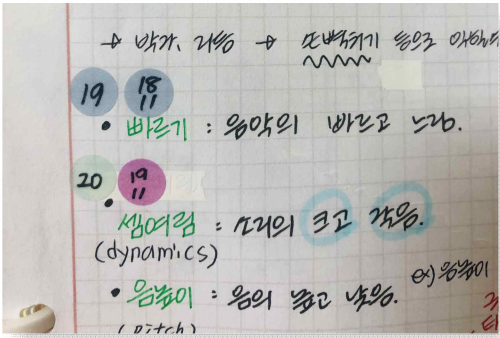 → 박자, 리듬 → 손뼉치기 등으로
19 18 11
• 빠르기 : 음악의 빠르고 느림.
20 19 11
• 셈여림 : 소리의 크고 작음.
(dynamics)
ex) 음높이
• 음높이 : 음의 높고 낮음.
(pitch)